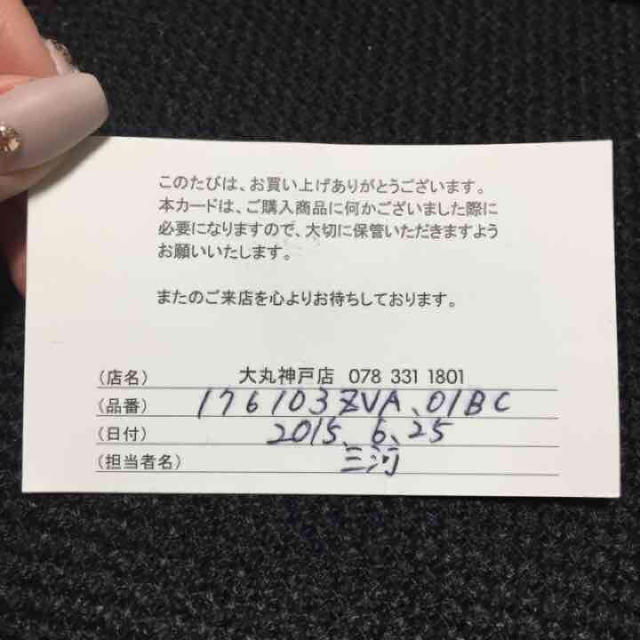 このたびは、お買い上げありがとうございます。
本カードは、ご購入商品に何かございました際に
必要になりますので、大切に保管いただきますよう
お願いいたします。
またのご来店を心よりお待ちしております。
(店名) 大丸神戸店 078 331 1801
(品番) 176103ZVA、01BC
(日付) 2015、6、25
(担当者名) 三河